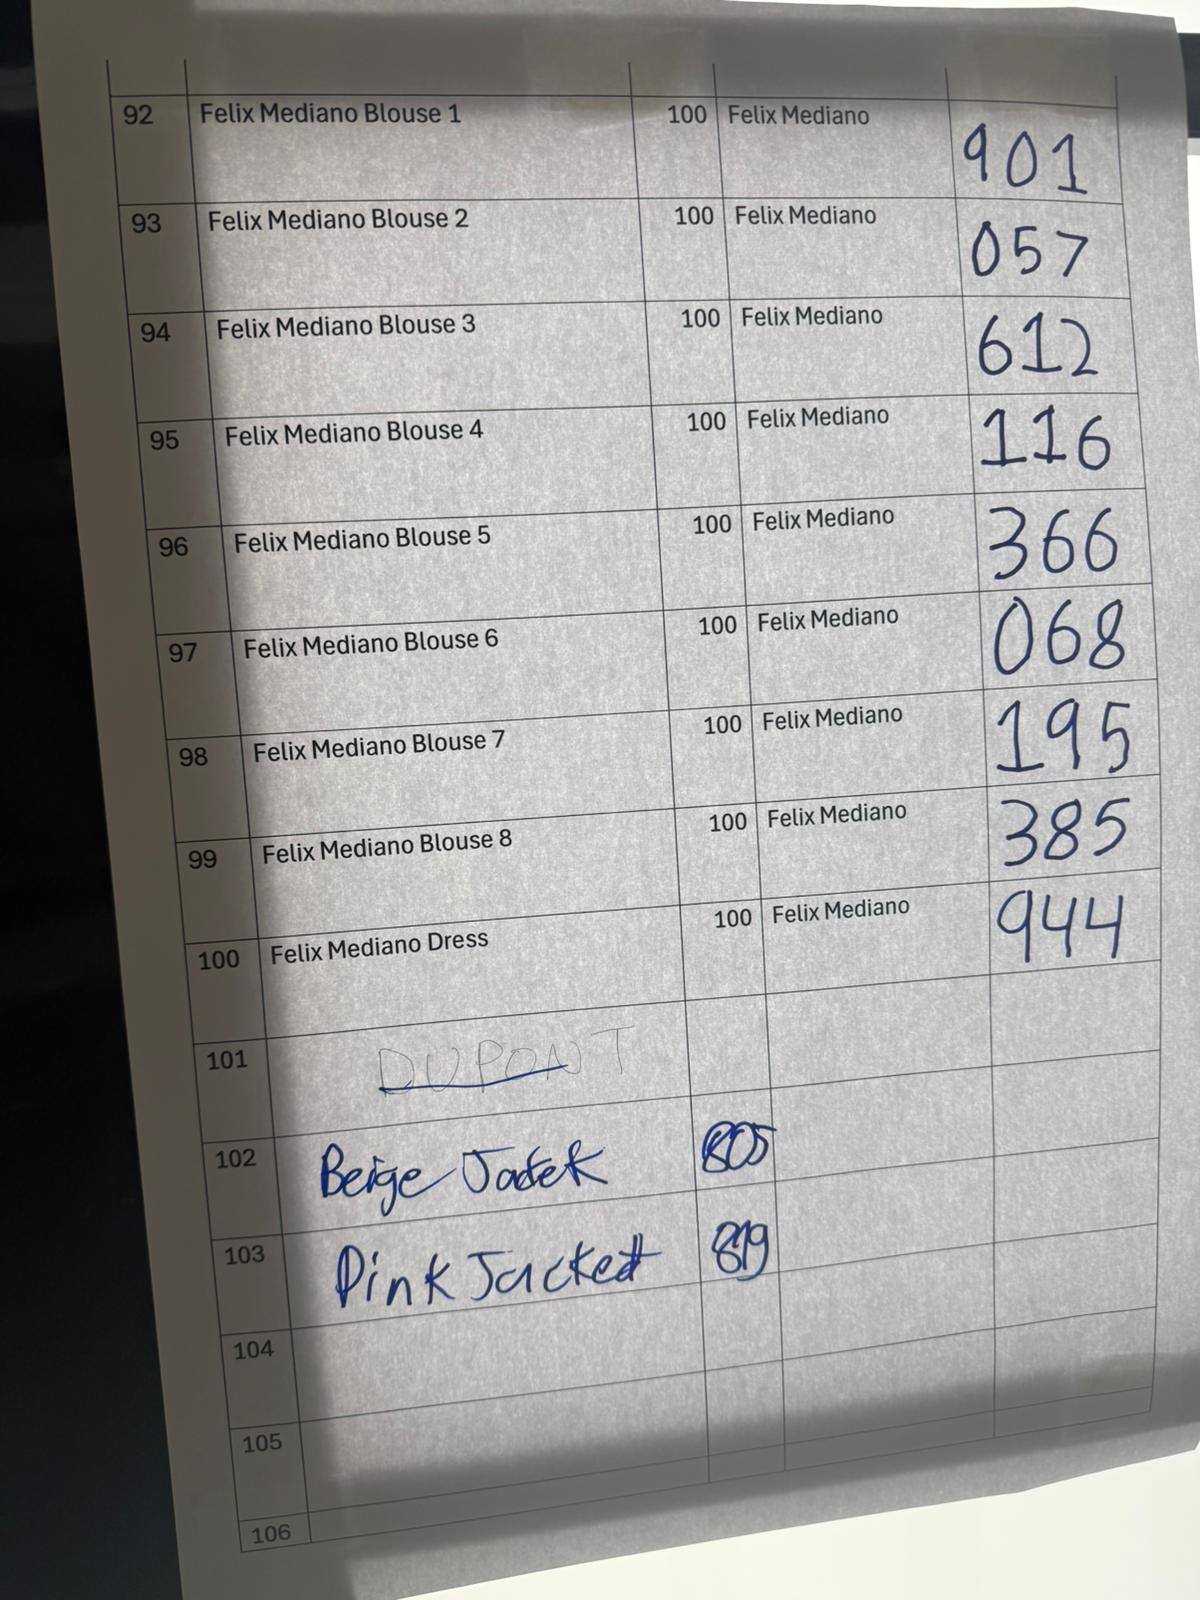 92 Felix Mediano Blouse 1 100 Felix Mediano 901
93 Felix Mediano Blouse 2 100 Felix Mediano 057
94 Felix Mediano Blouse 3 100 Felix Mediano 612
95 Felix Mediano Blouse 4 100 Felix Mediano 116
96 Felix Mediano Blouse 5 100 Felix Mediano 366
97 Felix Mediano Blouse 6 100 Felix Mediano 068
98 Felix Mediano Blouse 7 100 Felix Mediano 195
99 Felix Mediano Blouse 8 100 Felix Mediano 385
100 Felix Mediano Dress 100 Felix Mediano 944
101 DUPONT
102 Beige 805
103 Pink Jacket 819
104
105
106